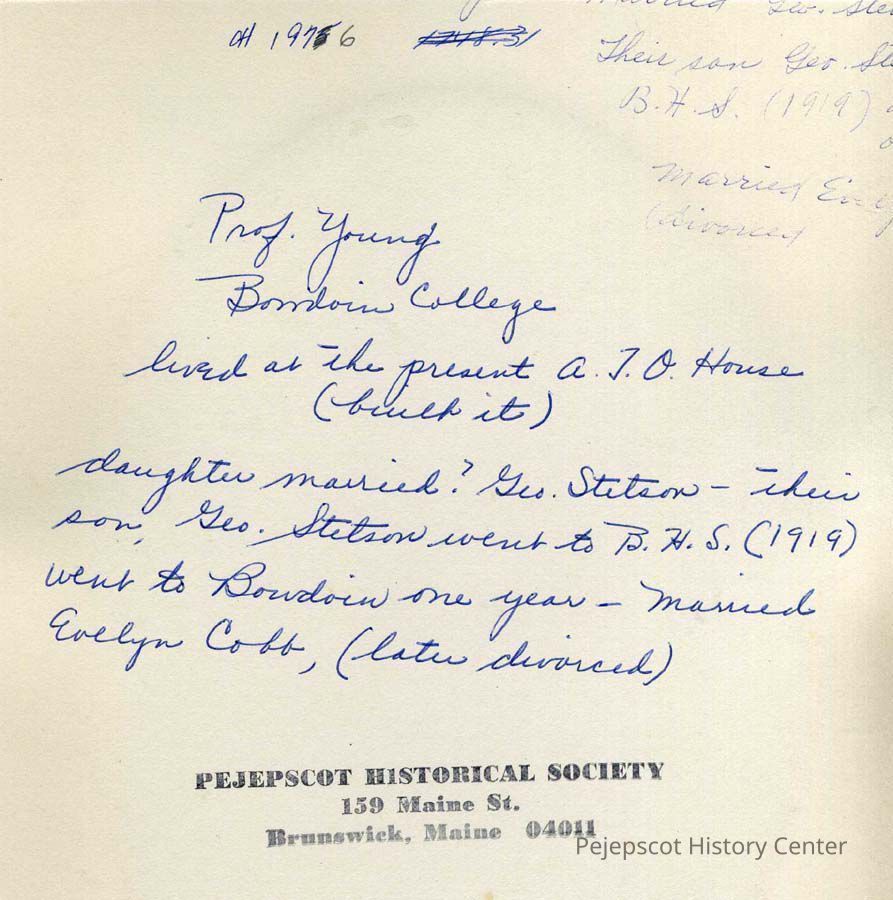 OH 1976
Married Geo. Ste
Their son Geo. St
B.H.S. (1919)
Married Ev
(divorced
Prof. Young
Bowdoin College
lived at the present A.T.O. House
(built it)
daughter married? Geo. Stetson – their
son, Geo. Stetson went to B.H.S. (1919)
went to Bowdoin one year – married
Evelyn Cobb, (later divorced)
PEJEPSCOT HISTORICAL SOCIETY
159 Maine St.
Brunswick, Maine 04011
Pejepscot History Center